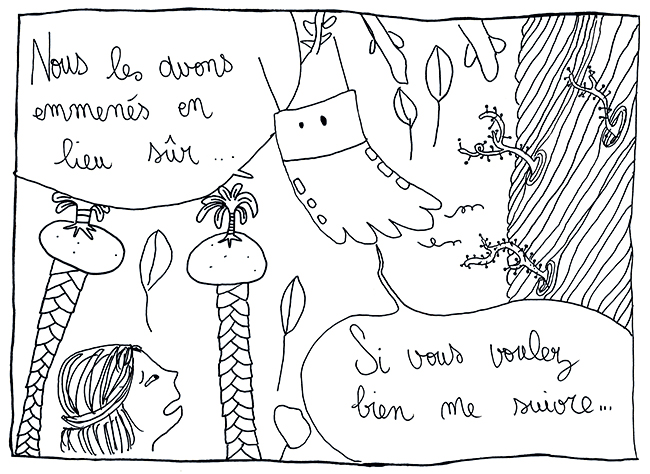 Nous les avons
emmenés en
lieu sûr...
Si vous voulez
bien me suivre...